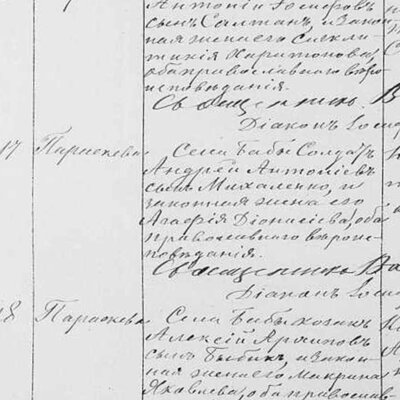 Антоній Іосифовъ
сынъ Салтанъ, и закон-
ная жена его Секли-
тикія Харитонова,
оба православнаго вѣро
исповѣданія.
Священникъ В
Діаконъ Іосиф
17 Параскева Села Бабы Солдатъ
Андрей Антоніевъ
сынъ Михаленко, и
законная жена его
Агафія Діонисіева, оба
православнаго вѣроис-
повѣданія.
Священникъ Ва
Діаконъ Іосиф
18 Параскева Села Бабы козакъ
Алексій Архиповъ
сынъ Быбикъ, и закон-
ная жена его Макрина
Яковлева, оба православ-